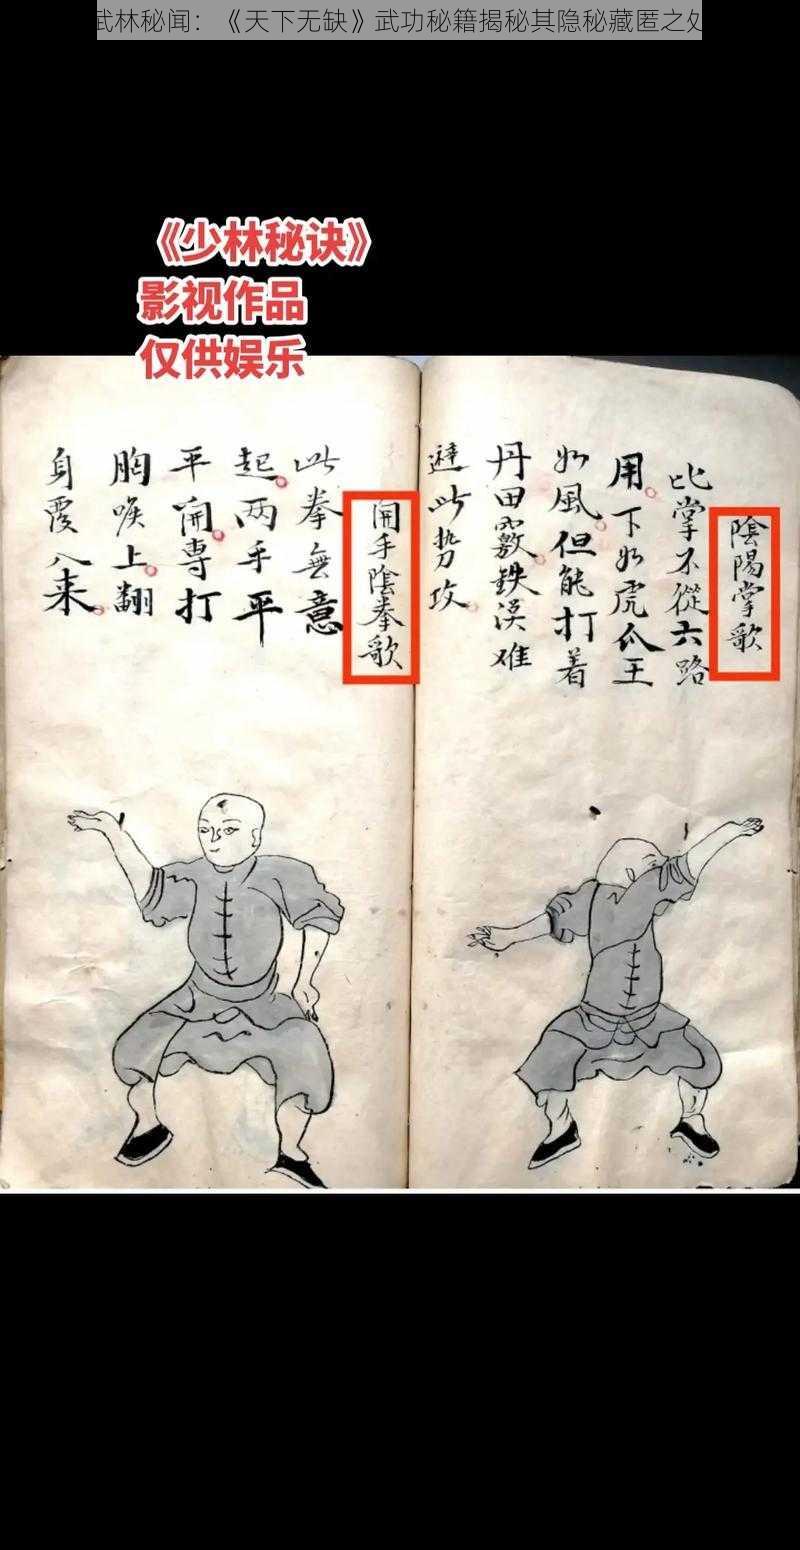 武林秘闻：《天下无缺》武功秘籍揭秘其隐秘藏匿之处
《少林秘诀》
影视作品
仅供娱乐
陰陽掌歌
此掌不從六路
用下如虎爪王
如風但能打着
丹田竅鉄漢难
避此势攻
開手陰拳歌
此拳無意
起两手平
平開專打
胸喉上翻
身覆入来